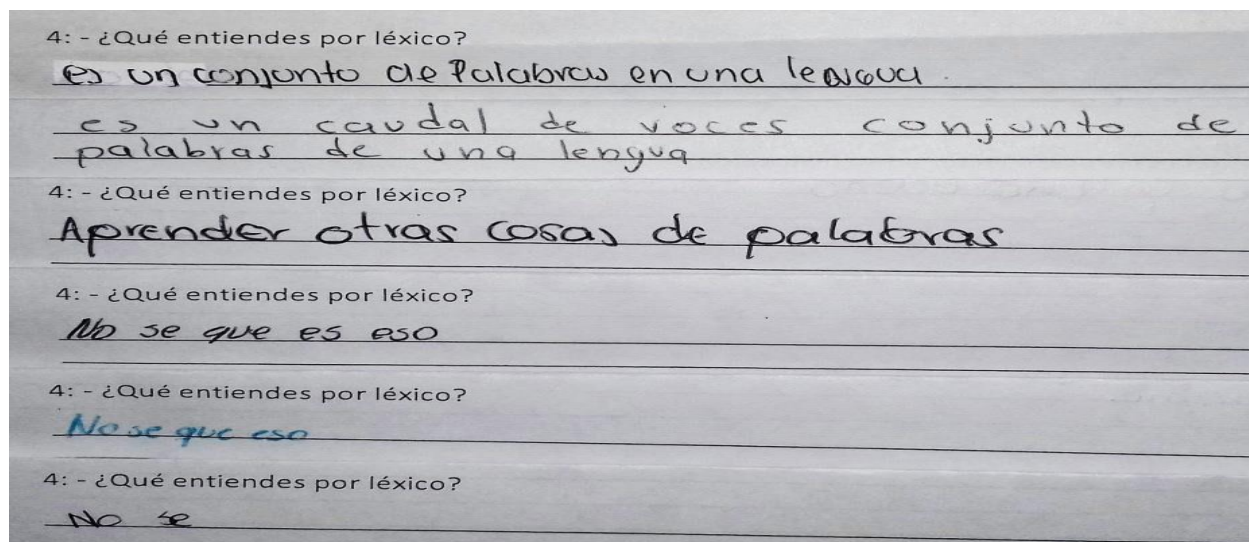 4: - ¿Qué entiendes por léxico?
es un conjunto de Palabras en una lengua.
es un caudal de voces conjunto de
palabras de una lengua
4: - ¿Qué entiendes por léxico?
Aprender otras cosas de palabras
4: - ¿Qué entiendes por léxico?
No se que es eso
4: - ¿Qué entiendes por léxico?
No se que eso
4: - ¿Qué entiendes por léxico?
No se